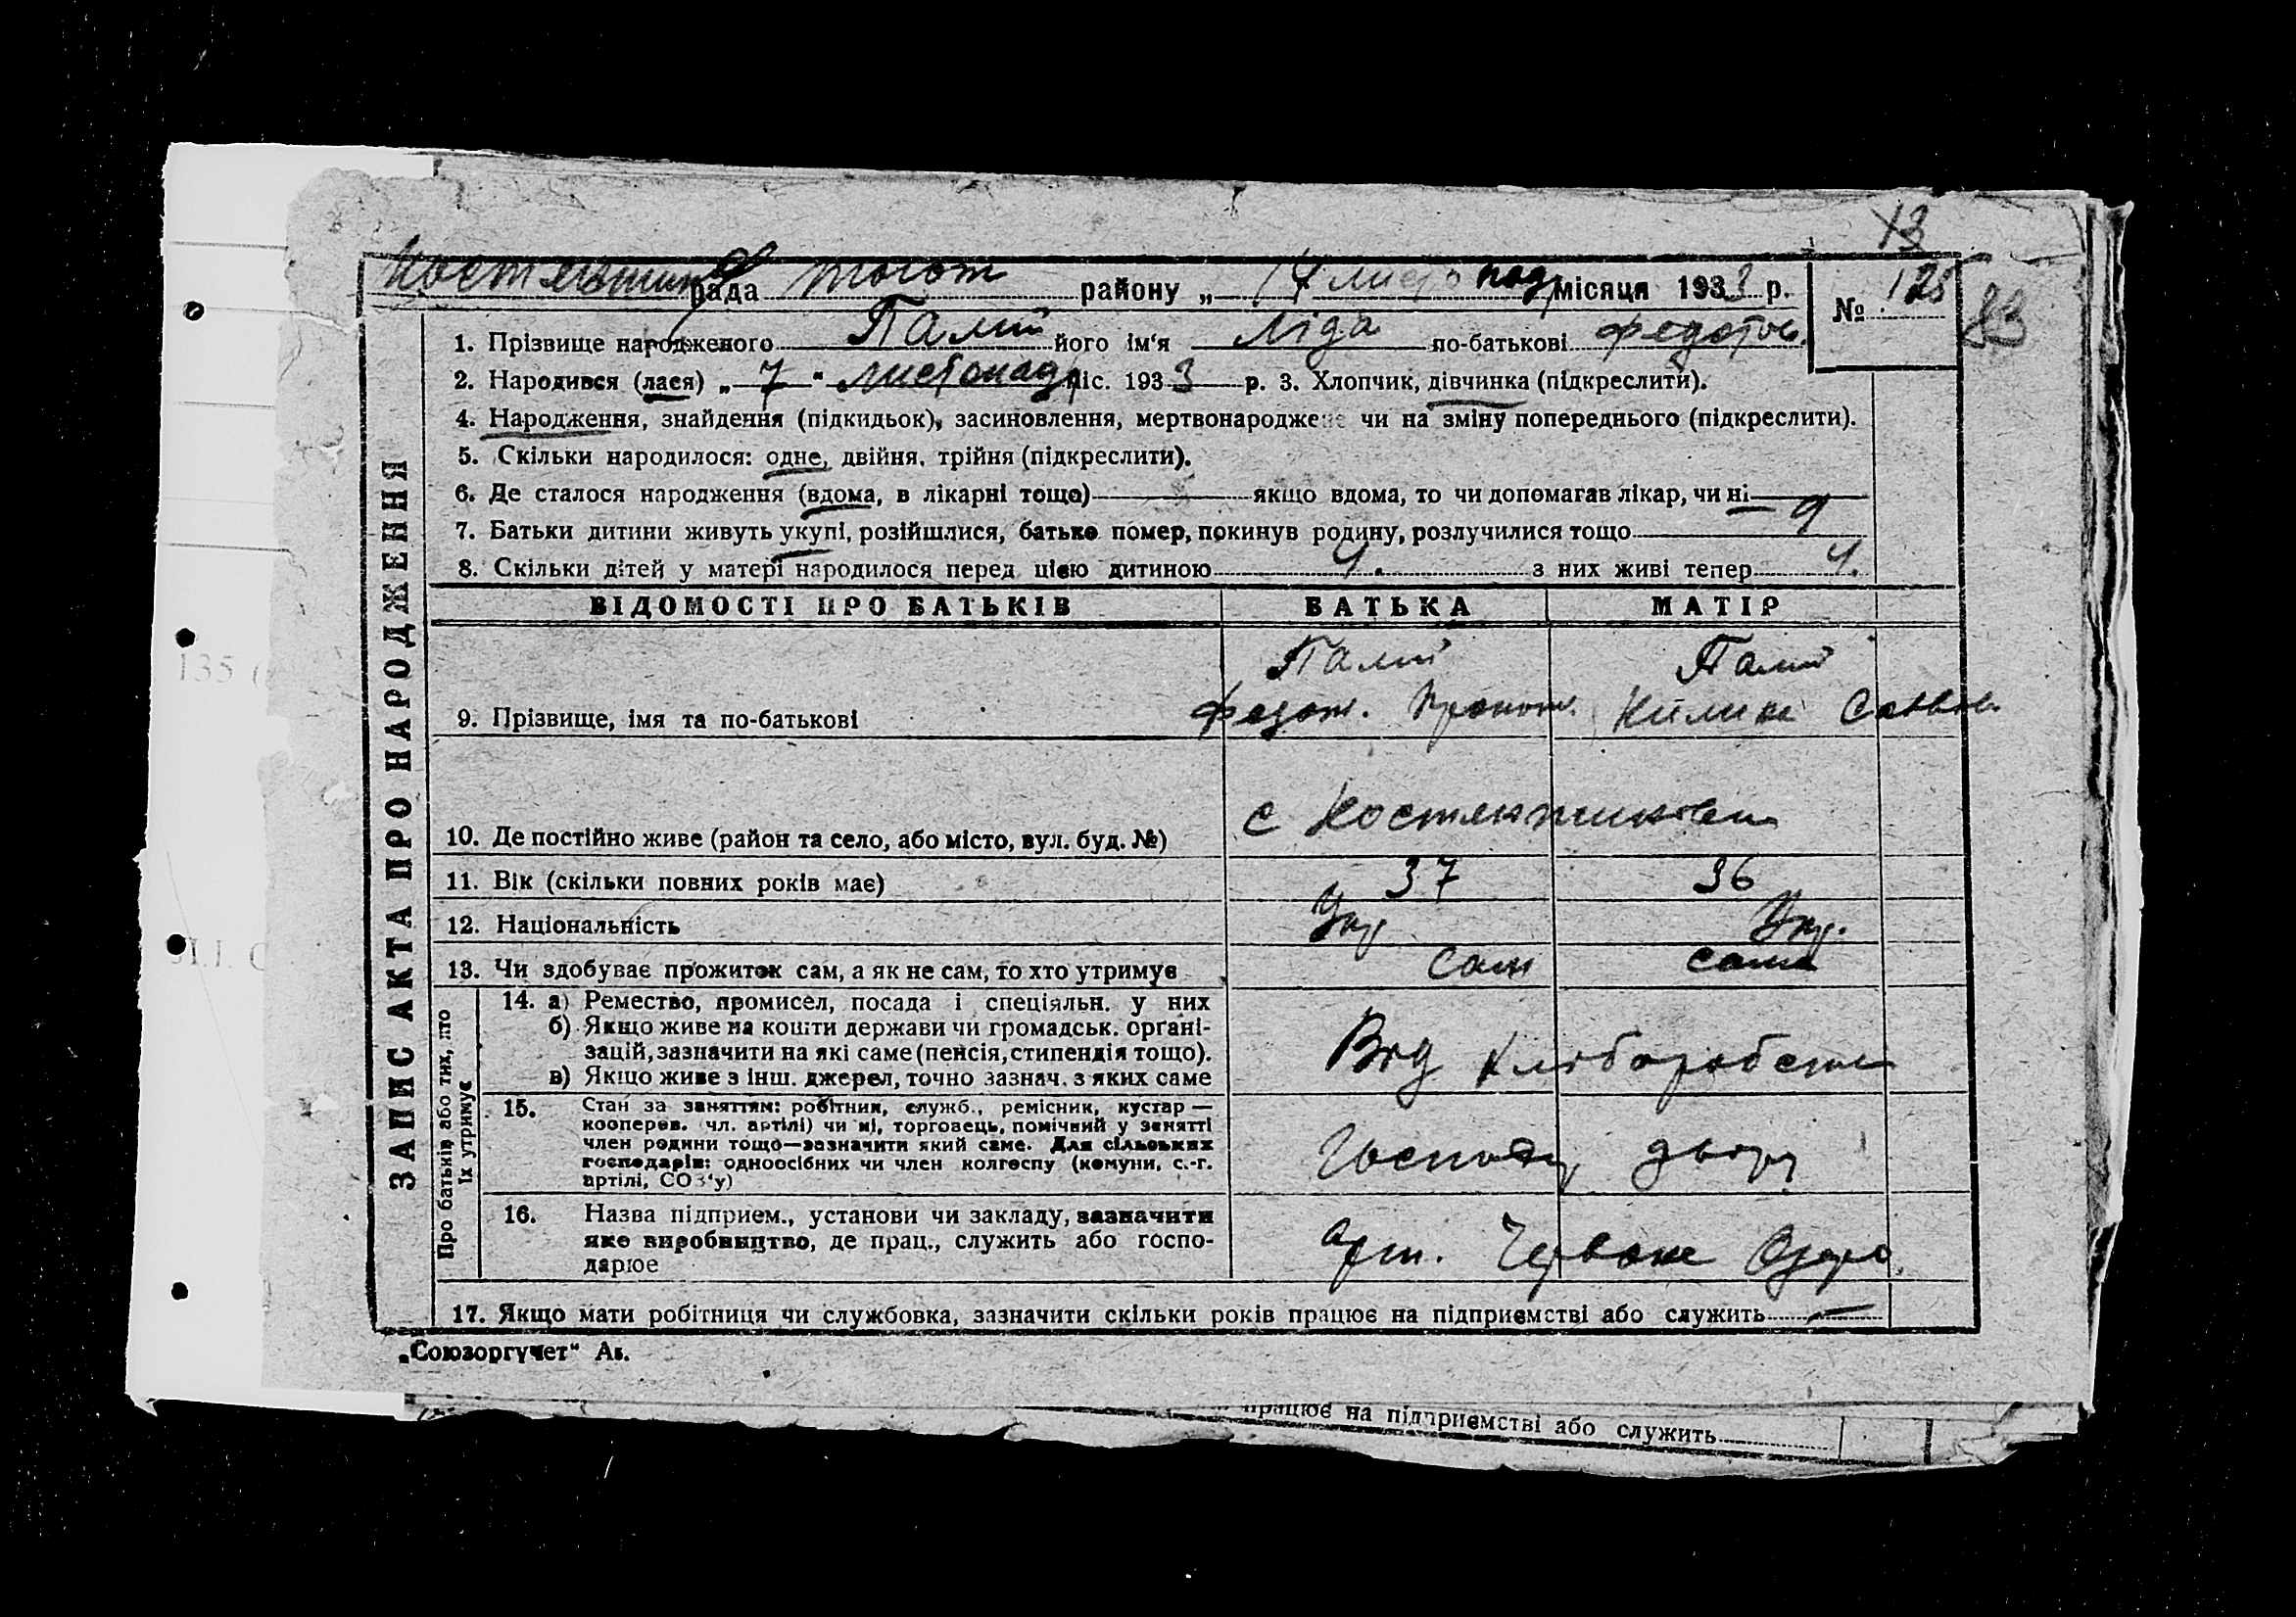 13
рада район у „ 14 листопад місяця 1933 р. № 125
83
1. Прізвище народженого Палій його ім‘я Ліда по-батькові Федотов.
2. Народився (лася) „ 7 “ листопад міс. 1933 р. 3. Хлопчик, дівчинка (підкреслити).
4. Народження, знайдення (підкидьок), засиновлення, мертвонароджене чи на зміну попереднього (підкреслити).
5. Скільки народилося: одне, двійня, трійня (підкреслити).
6. Де сталося народження (вдома, в лікарні тощо) якщо вдома, то чи допомагав лікар, чи ні
7. Батьки дитини живуть укупі, розійшлися, батько помер, покинув родину, розлучилися тощо
8. Скільки дітей у матері народилося перед цією дитиною 4. з них живі тепер 4.
ЗАПИС АКТА ПРО НАРОДЖЕННЯ
ВІДОМОСТІ ПРО БАТЬКІВ БАТЬКА МАТІР
Палій Палій
9. Прізвище, імя та по-батькові Федот.
10. Де постійно живе (район та село, або місто, вул. буд. №) с
11. Вік (скільки повних років має) 37 36
12. Національність Укр Укр.
13. Чи здобуває прожиток сам, а як не сам, то хто утримує сам сама
Про батьків або тих, хто
їх утримує
14. а) Ремество, промисел, посада і спеціяльн. у них
б) Якщо живе на кошти держави чи громадськ. органі-
зацій, зазначити на які саме (пенсія, стипендія тощо).
в) Якщо живе з інш. джерел, точно зазнач. з яких саме
Від хліборобства
15. Стан за заняттям: робітник, служб., ремісник, кустар —
кооперов. чл. артілі) чи ні, торговець, помічний у занятті
член родини тощо—зазначити який саме. Для сільських
господарів: одноосібних чи член колгоспу (комуни, с.-г.
артілі, СОЗ‘у)
Господ двору
16. Назва підприєм., установи чи закладу, зазначити
яке виробництво, де прац., служить або госпо-
дарює
арт. Червоне Озеро
17. Якщо мати робітниця чи службовка, зазначити скільки років працює на підприємстві або служить —
„Союзоргучет“
працює на підприємстві або служить
135